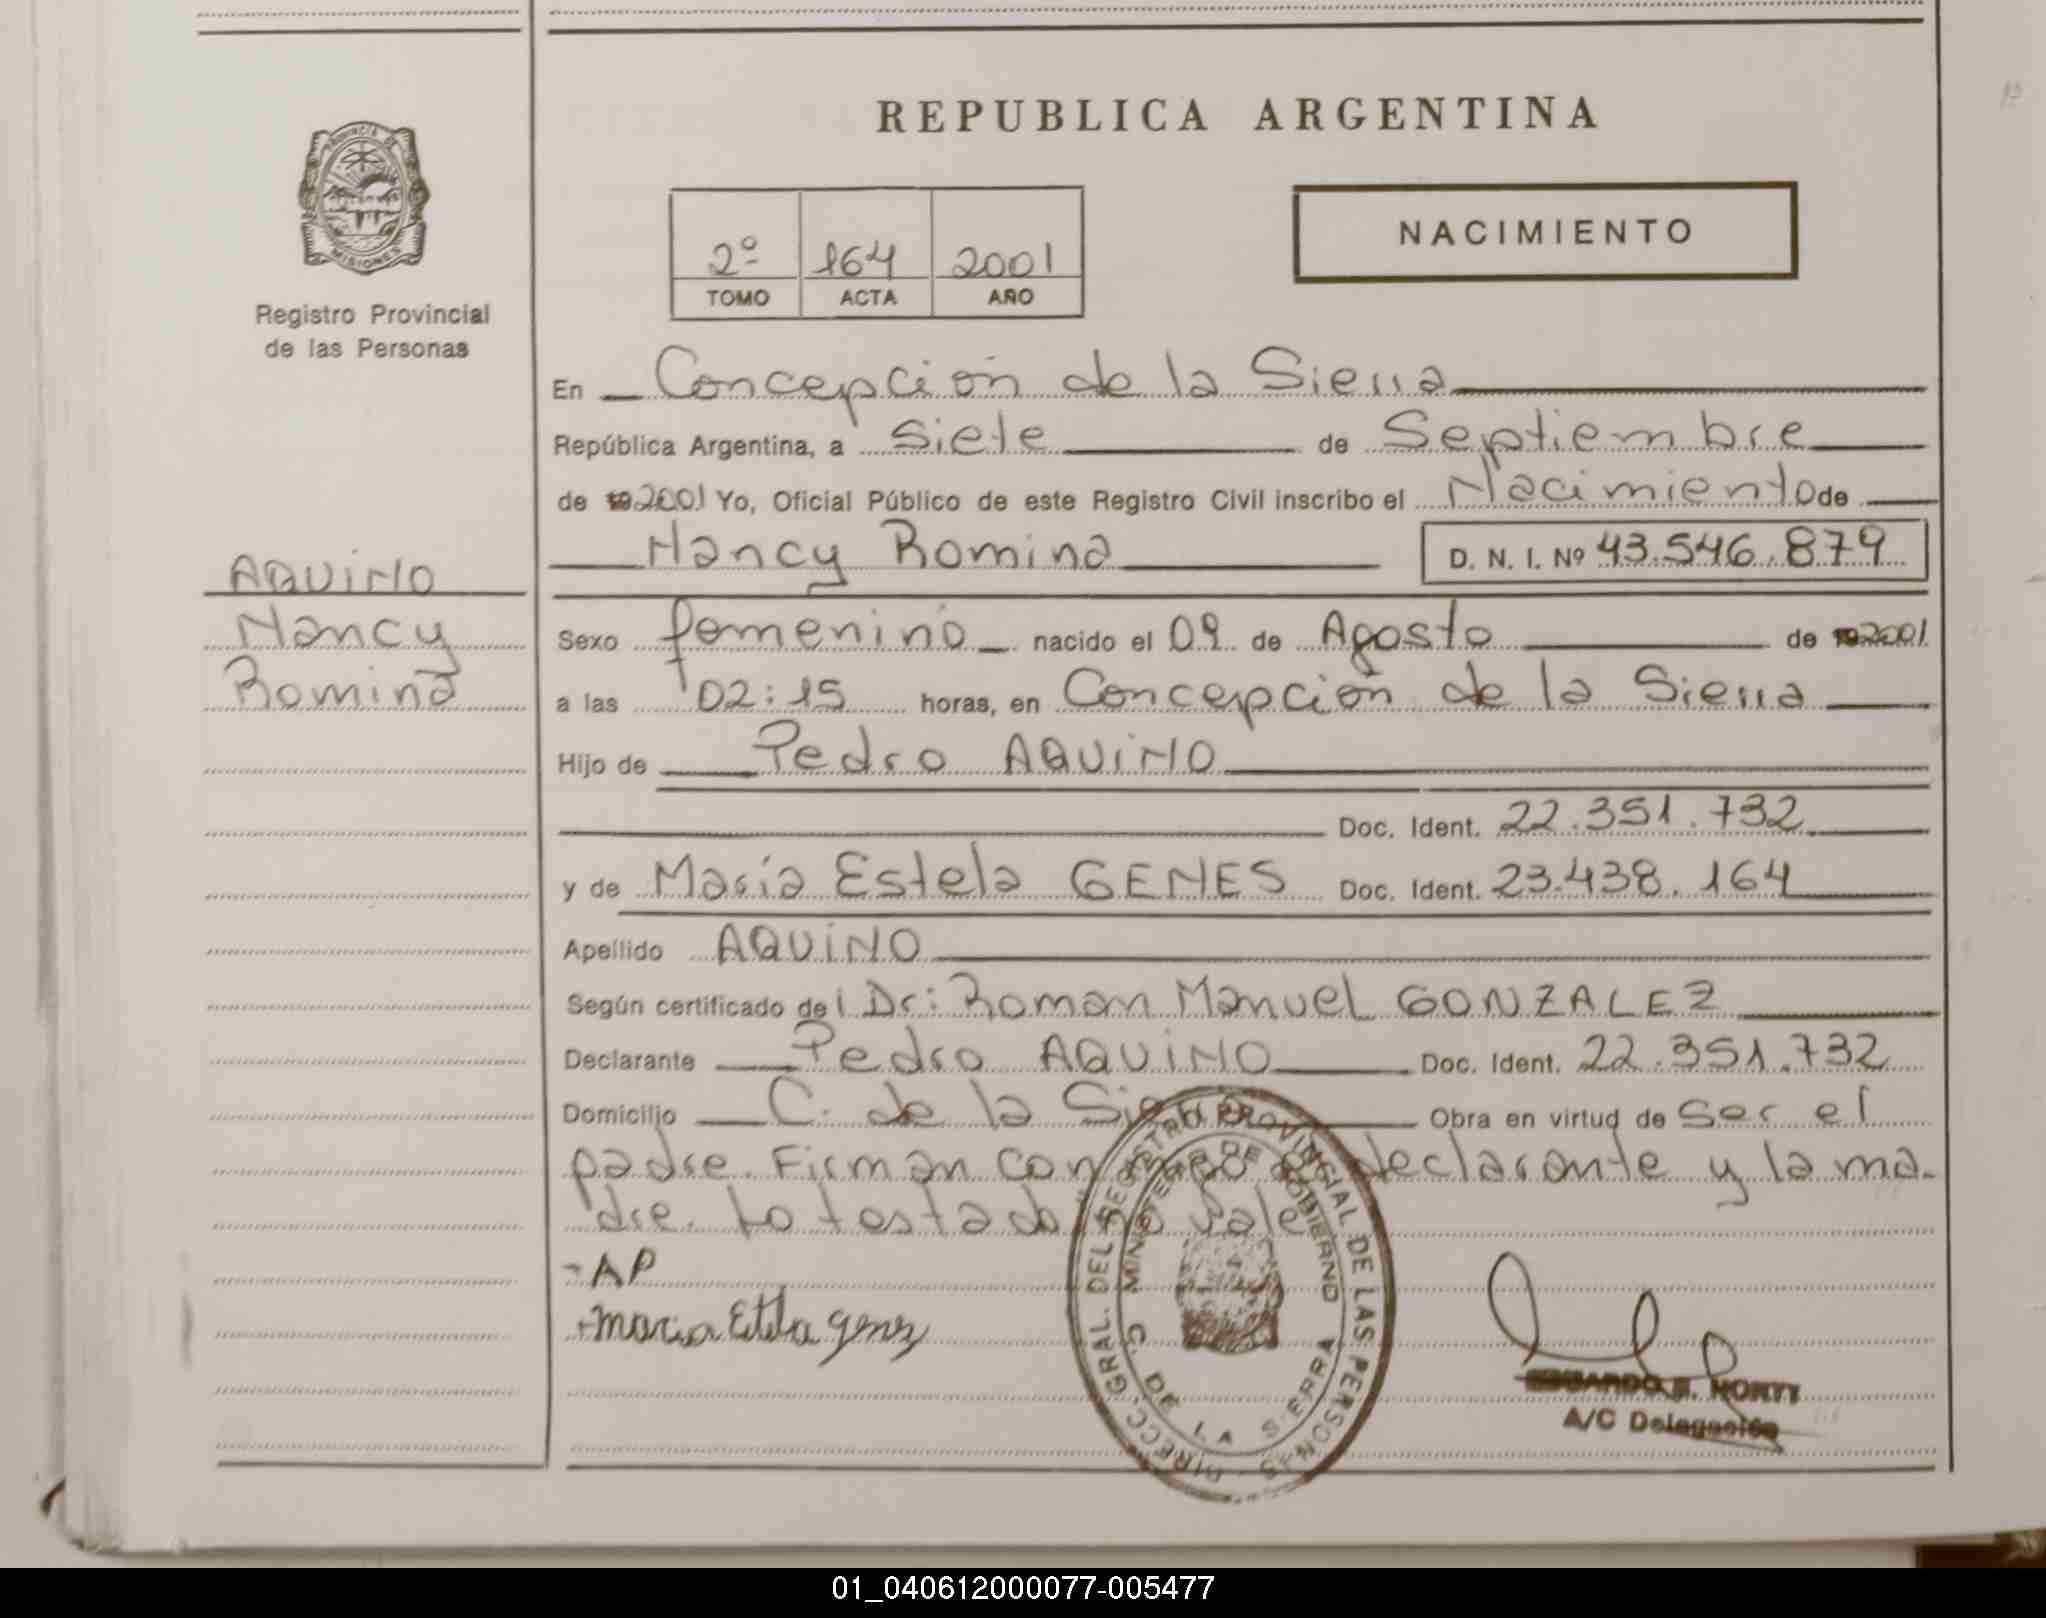 REPUBLICA ARGENTINA
PROVINCIA DE
MISIONES
Registro Provincial
de las Personas
2º 164 2001
TOMO ACTA AÑO
NACIMIENTO
En Concepción de la Sierra
República Argentina, a Siete de Septiembre
de 19 2001 Yo, Oficial Público de este Registro Civil inscribo el Nacimiento de
Nancy Romina D. N. I. Nº 43.546.879
AQUINO
Nancy
Romina
Sexo femenino nacido el 09 de Agosto de 19 2001
a las 02:15 horas, en Concepción de la Sierra
Hijo de Pedro AQUINO
Doc. Ident. 22.351.732
y de María Estela GENES Doc. Ident. 23.438.164
Apellido AQUINO
Según certificado del Dr: Roman Manuel GONZALEZ
Declarante Pedro AQUINO Doc. Ident. 22.351.732
Domicilio C. de la Sierra Obra en virtud de ser el
padre. Firman conmigo el declarante y la ma-
dre. Lo testado no vale
-AP
-maria Estela genez
DIRECC. GRAL. DEL REGISTRO PROVINCIAL DE LAS PERSONAS
MINISTERIO DE GOBIERNO
C. DE LA SIERRA
A/C Delegación
01_040612000077-005477